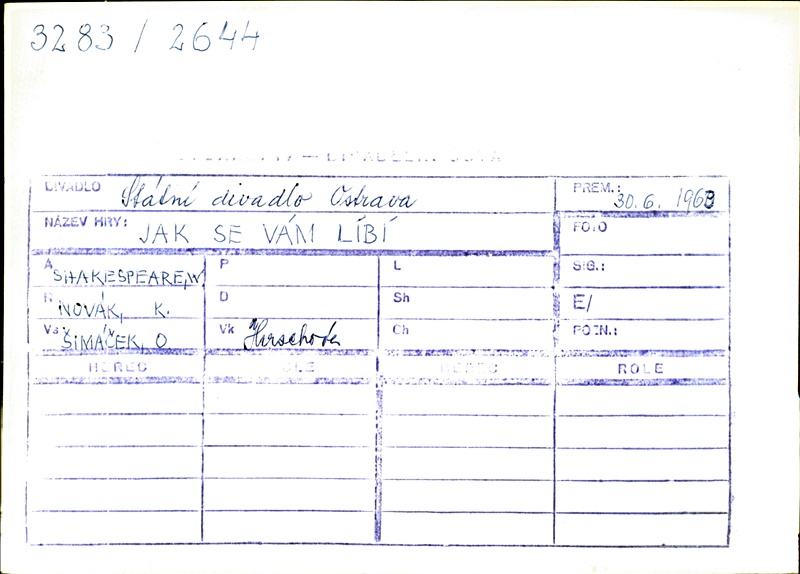 3283 / 2644
DIVADLO Státní divadlo Ostrava PREM.: 30. 6. 1963
NÁZEV HRY: JAK SE VÁM LÍBÍ FOTO
A SHAKESPEARE, W. P L SIG.:
R NOVÁK, K. D Sh E/
Vs ŠIMÁČEK, O. Vk Hirschová Ch POZN.:
HEREC ROLE HEREC ROLE